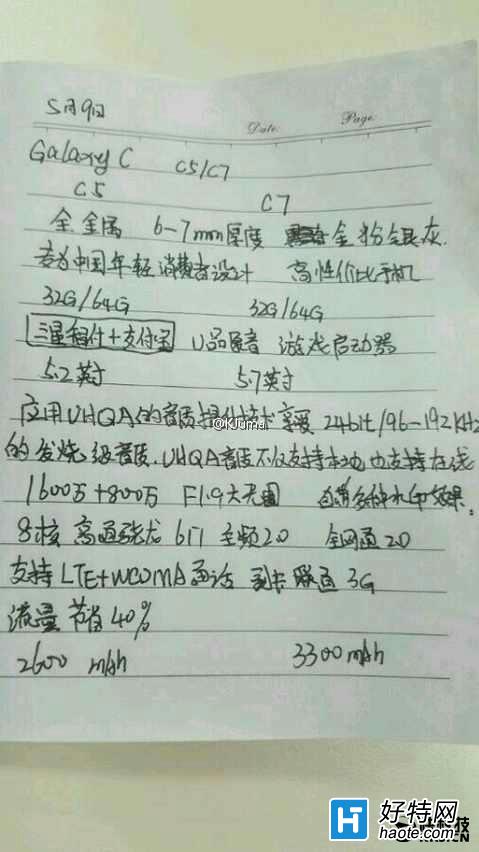 5月9日
Date Page
Galaxy C C5/C7
C5 C7
全金属 6-7mm厚度 金粉银灰.
专为中国年轻消费者设计 高性价比手机
32G/64G 32G/64G
三星智付+支付宝 U品醇音 游戏启动器
5.2英寸 5.7英寸
@KJuma
应用UHQA的音质提升技术享受 24bit/96-192KHz
的发烧级音质.UHQA音质不仅支持本地也支持在线
1600万+800万 F1.9大光圈 自带多种水印效果.
8核 高通骁龙617 主频2.0 全网通2.0
支持LTE+WCDMA通话 副卡联通3G
流量节省40%
2600 mAh 3300mAh
好特网
haote.com